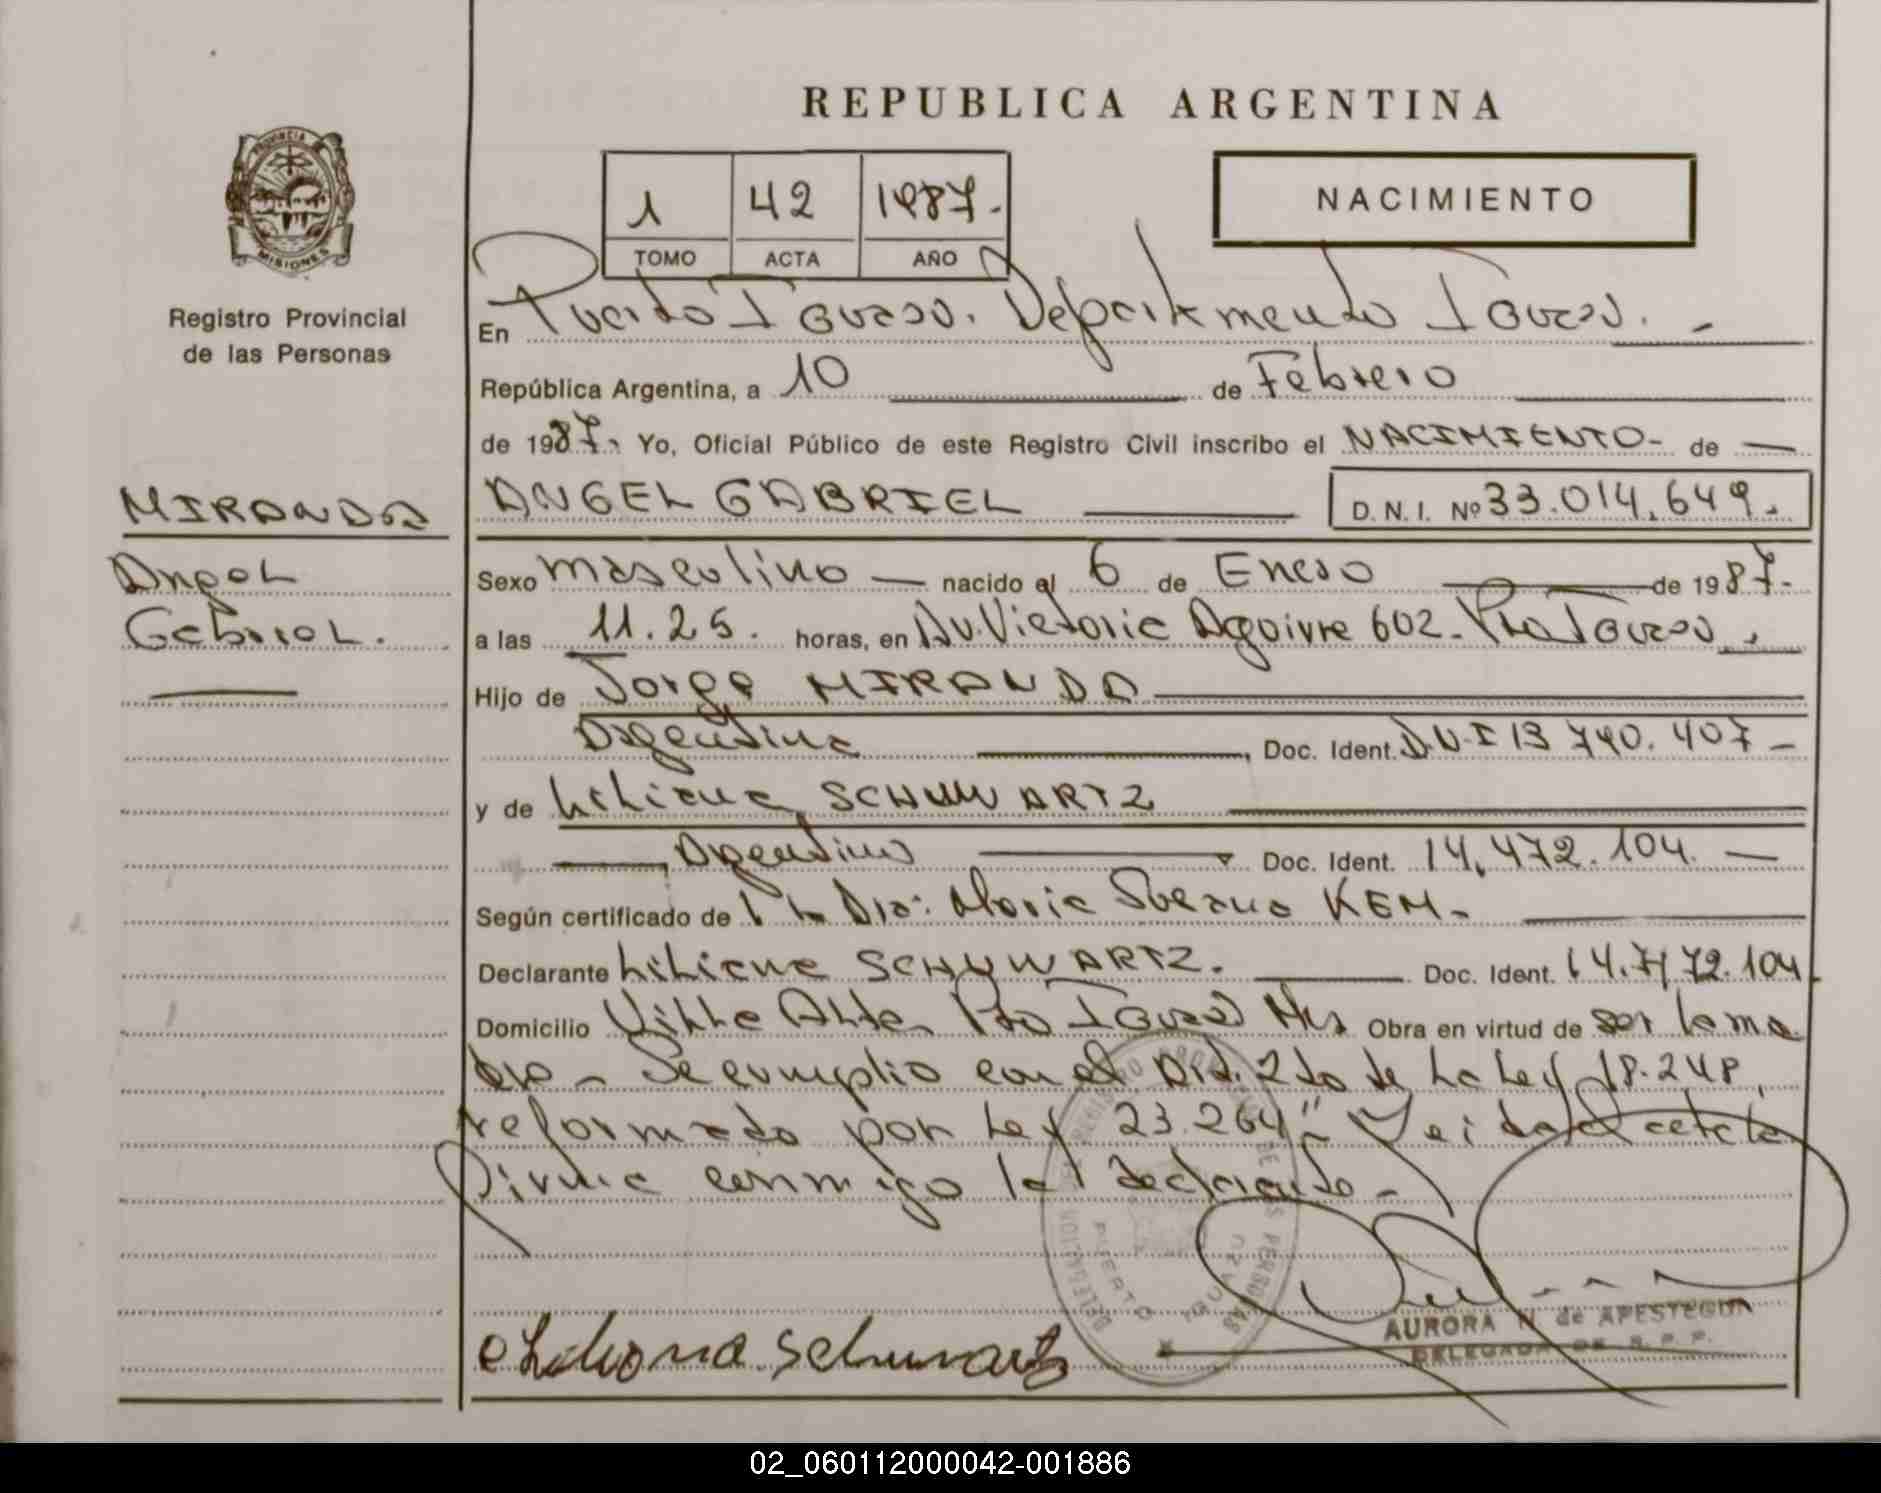 REPUBLICA ARGENTINA
PROVINCIA
MISIONES
Registro Provincial
de las Personas
1 42 1987.
TOMO ACTA AÑO
NACIMIENTO
En Puerto Iguazú. Departamento Iguazú. -
República Argentina, a 10 de Febrero
de 1987. Yo, Oficial Público de este Registro Civil inscribo el NACIMIENTO- de
MIRANDA
ANGEL GABRIEL D. N. I. Nº 33.014.649.
Angel
Sexo masculino nacido el 6 de Enero de 1987-
Gabriel.
a las 11.25. horas, en Av. Victoria Aguirre 602- Pto Iguazú.
Hijo de Jorge MIRANDA
Argentina, Doc. Ident. D.N.I 13 740.407-
y de Liliana SCHUWARTZ
Argentina Doc. Ident. 14.472.104.
Según certificado de la Dra: Maria KEM-
Declarante Liliana SCHUWARTZ. Doc. Ident. 14.472.104
Domicilio Villa Alta Pto Iguazú Mis Obra en virtud de ser la ma
dre - Se cumplio con el Art. 2do de la Ley 18.248,
reformado por Ley 23.264" Leida el acta la
firma conmigo la declarante-
DELEGACION DEL REGISTRO PROVINCIAL DE LAS PERSONAS
PUERTO IGUAZU
Liliana Schuwartz
AURORA N de APESTEGUIA
DELEGADA DE R. P. P.
02_060112000042-001886